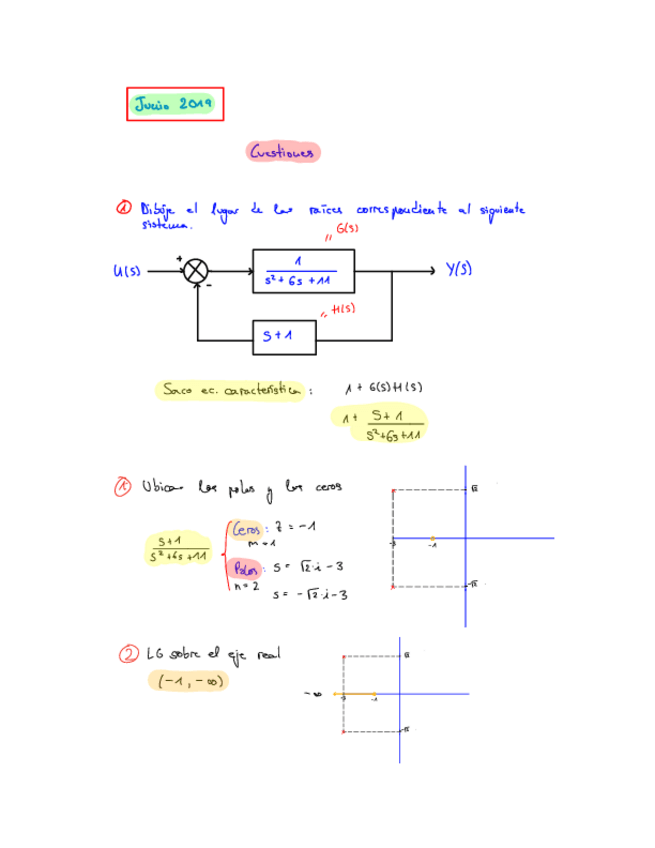 Junio 2019
Cuestiones
① Dibuje el lugar de las raíces correspondiente al siguiente
sistema.
G(s)
U(s)
+
-
1
s²+6s+11
Y(s)
H(s)
s+1
Saco ec. característica: 1 + G(s)H(s)
1 + s+1
s²+6s+11
① Ubicar los polos y los ceros
√2
s+1
s²+6s+11
Ceros: z = -1
m = 1
-3
-1
Polos: s = √2·i - 3
n = 2
s = -√2·i - 3
-√2
② LG sobre el eje real
(-1, -∞)
√2
-∞
-3
-1
-√2